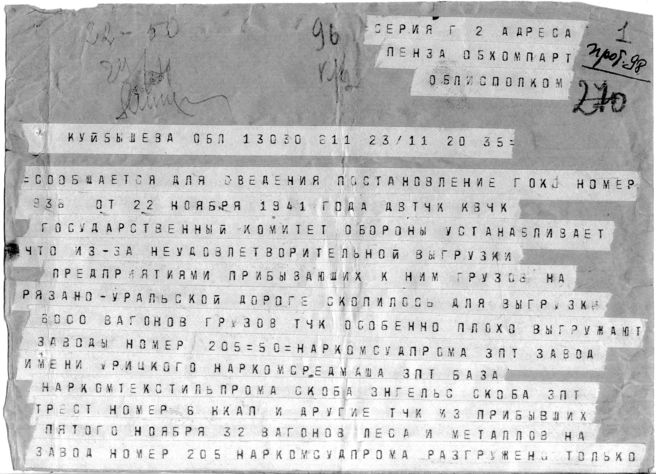 22-50
96
1
СЕРИЯ Г 2 АДРЕСА
ПЕНЗА ОБКОМПАРТ
ОБЛИСПОЛКОМ
270
КУЙБЫШЕВА ОБЛ 13030 211 23/11 20 35=
=СООБШАЕТСЯ ДЛЯ СВЕДЕНИЯ ПОСТАНОВЛЕНИЕ ГОКО НОМЕР
938 ОТ 22 НОЯБРЯ 1941 ГОДА ДВТЧК КВЧК
ГОСУДАРСТВЕННЫЙ КОМИТЕТ ОБОРОНЫ УСТАНАВЛИВАЕТ
ЧТО ИЗ-ЗА НЕУДОВЛЕТВОРИТЕЛЬНОЙ ВЫГРУЗКИ
ПРЕДПРИЯТИЯМИ ПРИБЫВАЮЩИХ К НИМ ГРУЗОВ НА
РЯЗАНО-УРАЛЬСКОЙ ДОРОГЕ СКОПИЛОСЬ ДЛЯ ВЫГРУЗКИ
6000 ВАГОНОВ ГРУЗОВ ТЧК ОСОБЕННО ПЛОХО ВЫГРУЖАЮТ
ЗАВОДЫ НОМЕР 205=50=НАРКОМСУДПРОМА ЗПТ ЗАВОД
ИМЕНИ УРИЦКОГО НАРКОМСРЕДМАША ЗПТ БАЗА
НАРКОМТЕКСТИЛЬПРОМА СКОБА ЭНГЕЛЬС СКОБА ЗПТ
ТРЕСТ НОМЕР 6 НКАП И ДРУГИЕ ТЧК ИЗ ПРИБЫВШИХ
ПЯТОГО НОЯБРЯ 32 ВАГОНОВ ЛЕСА И МЕТАЛЛОВ НА
ЗАВОД НОМЕР 205 НАРКОМСУДПРОМА РАЗГРУЖЕНО ТОЛЬКО